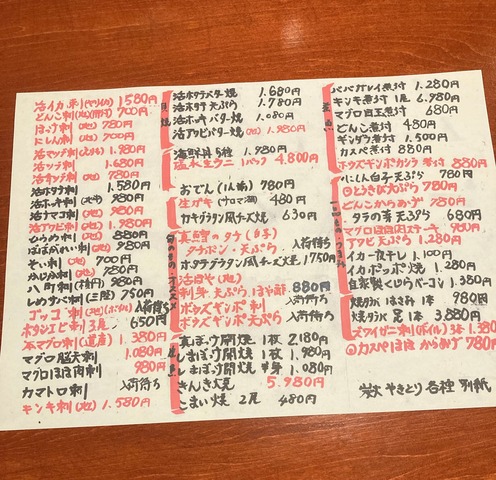 活イカ刺(ヤリイカ) 1580円
どんこ刺(地)(肝付) 700円
ほっけ刺 (地) 780円
にしん刺 (地) 700円
活マツブ刺(エゾ) 1.980円
活ツブ刺 1.680円
活 刺(地) 780円
活ホタテ刺 1.580円
活ホッキ刺 (地) 980円
活ナマコ刺 (地) 980円
活アワビ刺 (地) 1.980円
ひらめ刺 (地) 880円
ばばがれい刺(地) 980円
そい刺 (地) 700円
かじか刺 (地) 780円
八 町刺 980円
しめサバ刺(三陸) 750円
ゴッコ 刺 (地) 入荷待ち
ボタンエビ刺 3尾 650円
本マグロ刺 1.380円
マグロ脳天刺 1.080円
マグロほほ肉刺 980円
カマトロ刺 入荷待ち
キンキ刺 (地) 1.580円
活ホタテバター焼 1.680円
活ホタテ 天ぷら 1.780円
活ホッキバター焼 980円
活アワビバター焼 (地) 1.980円
海鮮丼 5種 1.980円
塩水生ウニ 1パック 4.800円
おでん (1人前) 780円
生ガキ (ナロマ湾) 480円
カキグラタン風チーズ焼 630円
真鱈のタチ (白子)
タチポン・天ぷら 入荷待ち
ホタテグラタン風チーズ焼 1750円
活ほや (地)
刺身 天ぷら ほや酢 880円
ボウズギンポ 刺 入荷待ち
ボウズギンポ天ぷら 入荷待ち
真ほっけ開焼 1枚 2.180円
しまほっけ開焼 1枚 1.980円
しまほっけ開焼 半身 1.080円
きんき大焼 5.980円
こまい焼 2尾 480円
ババガレイ煮付 1.280円
キンキ煮付 1尾 6.980円
マグロ目玉煮付 680円
どんこ煮付 480円
ギンダラ煮付 1.500円
カスベ煮付 880円
ボウズギンポカブト煮付 880円
にしん白子天ぷら 780円
◎ときしらず天ぷら 780円
どんこからあげ 780円
タラの芽 天ぷら 680円
マグロほほ肉ステーキ 980円
アワビ 天ぷら 1.280円
イカ一夜干し 1.100円
イカポッポ焼 1.280円
自家製くじらベーコン 1.380円
焼タコ はさみ 1本 980円
焼タラバ 足 1本 3.880円
ズワイガニ刺(ボイル) 3本 1.380円
◎カスベほほ からあげ 780円
炭火 やきとり 各種 別紙